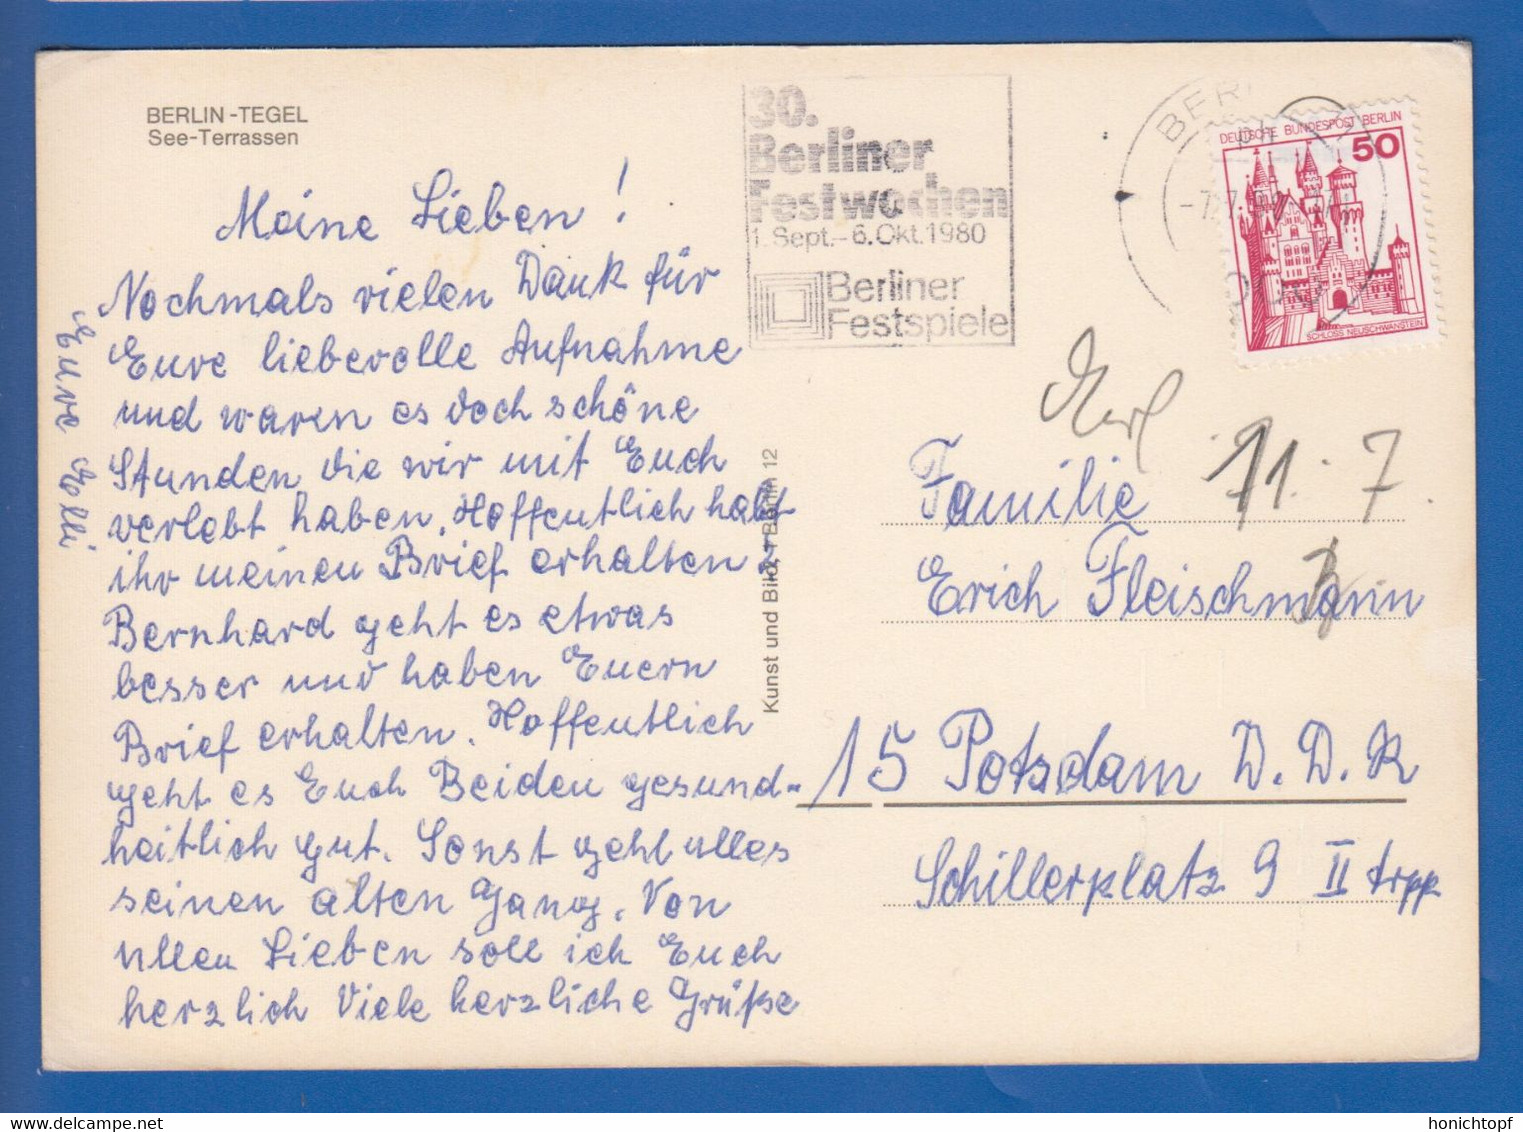 BERLIN-TEGEL
See-Terrassen
Meine Lieben!
Nochmals vielen Dank für
Eure liebevolle Aufnahme
und waren es doch schöne
Stunden die wir mit Euch
verlebt haben. Hoffentlich habt
ihr meinen Brief erhalten
Bernhard geht es etwas
besser und haben Euern
Brief erhalten. Hoffentlich
geht es Euch Beiden gesund-
heitlich gut. Sonst geht alles
seinen alten Gang. Von
allen Lieben soll ich Euch
herzlich Viele herzliche Grüße
Eure Kolli
Kunst und Bild, 1 Berlin 12
30.
Berliner
Festwochen
1. Sept.-6. Okt. 1980
Berliner
Festspiele
BERLIN
DEUTSCHE BUNDESPOST BERLIN
50
SCHLOSS NEUSCHWANSTEIN
11. 7.
Familie
Erich Fleischmann
15 Potsdam D.D.R
Schillerplatz 9 II trpp
delcampe.net
honichtopf